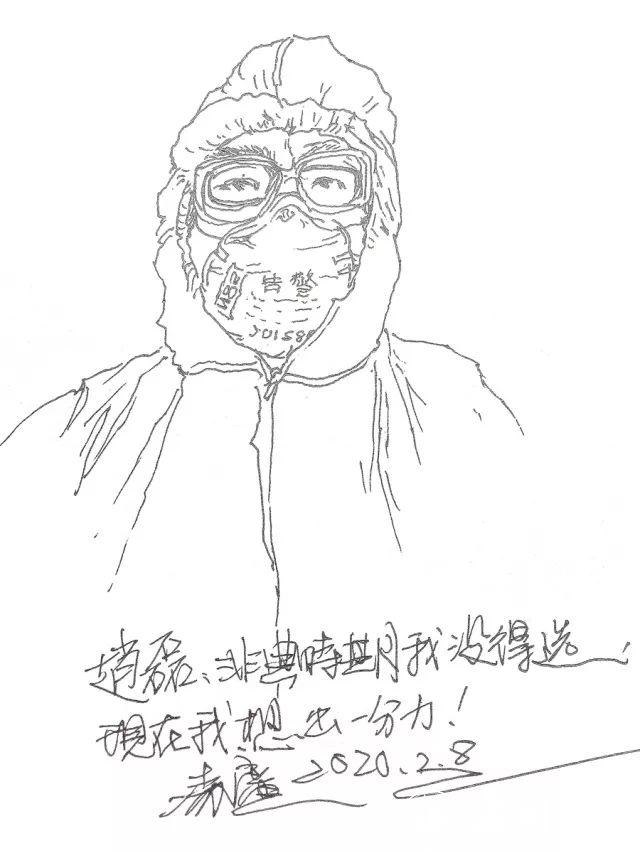 告警
趙磊、非典時期我没得选,
現在我想出一分力!
2020.2.8